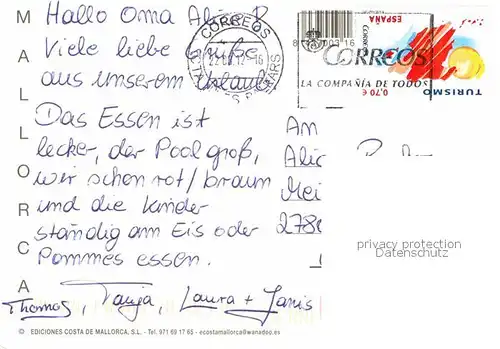 MALLORCA
Hallo Oma
Viele liebe Grüße
aus unserem Urlaub
Das Essen ist
lecker, der Pool groß,
wir schon rot/braun
und die Kinder
ständig am Eis oder
Pommes essen.
Thomas, Tanja, Laura + Janis
CORREOS
ESPAÑA
CORREOS
LA COMPAÑÍA DE TODOS
TURISMO
0,70 €
An
privacy protection
Datenschutz
© EDICIONES COSTA DE MALLORCA, S.L. - Tel. 971 69 17 65 - ecostamallorca@wanadoo.es